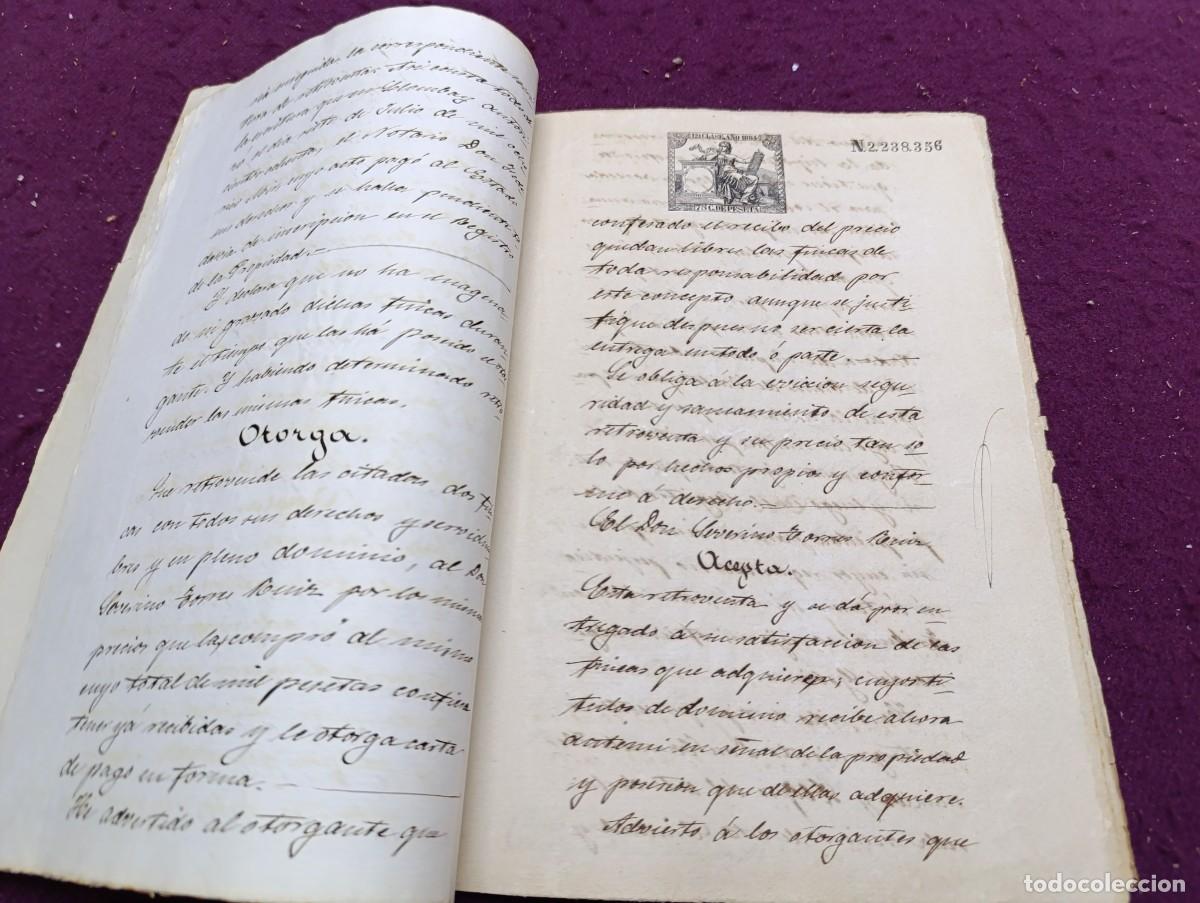 la correspondiente
tura de retroventa. Así consta todo de
la escritura que en
ro, el día siete de Julio de mil ocho
cientos ochenta, el Notario Don
cuyo acto pagó al Estado
sus derechos y se halla pendiente to
davía de inscripcion en el Registro
de la Propiedad.
Y declara que no ha enagena
do ni gravado dichas fincas duran
te el tiempo que las há poseido el otor
gante. Y habiendo determinado retro
vender las mismas fincas,
Otorga.
Que retrovende las citadas dos fin
cas con todos sus derechos y servidum
bres y en pleno dominio, al Don
Severino Torres Ruiz por los mismos
precios que las compró al mismo
cuyo total de mil pesetas confiesa
tener yá recibidas y le otorga carta
de pago en forma.
He advertido al otorgante que
12ª CLASE. AÑO 1884
75 C. DE PESETA
N.2.238.356
confesado el recibo del precio
quedan libres las fincas de
toda responsabilidad por
este concepto aunque se justi
fique despues no ser cierta la
entrega en todo ó parte.
Se obliga á la eviccion segu
ridad y saneamiento de esta
retroventa y su precio tan so
lo por hechos propios y confor
me á derecho.
El Don Severino Torres Ruiz
Acepta.
Esta retroventa y se dá por en
tregado á su satisfaccion de las
fincas que adquiere, cuyos tí
tulos de dominio recibe ahora
ante mi en señal de la propiedad
y posesion que de ellas adquiere.
Advierto á los otorgantes que
todocoleccion